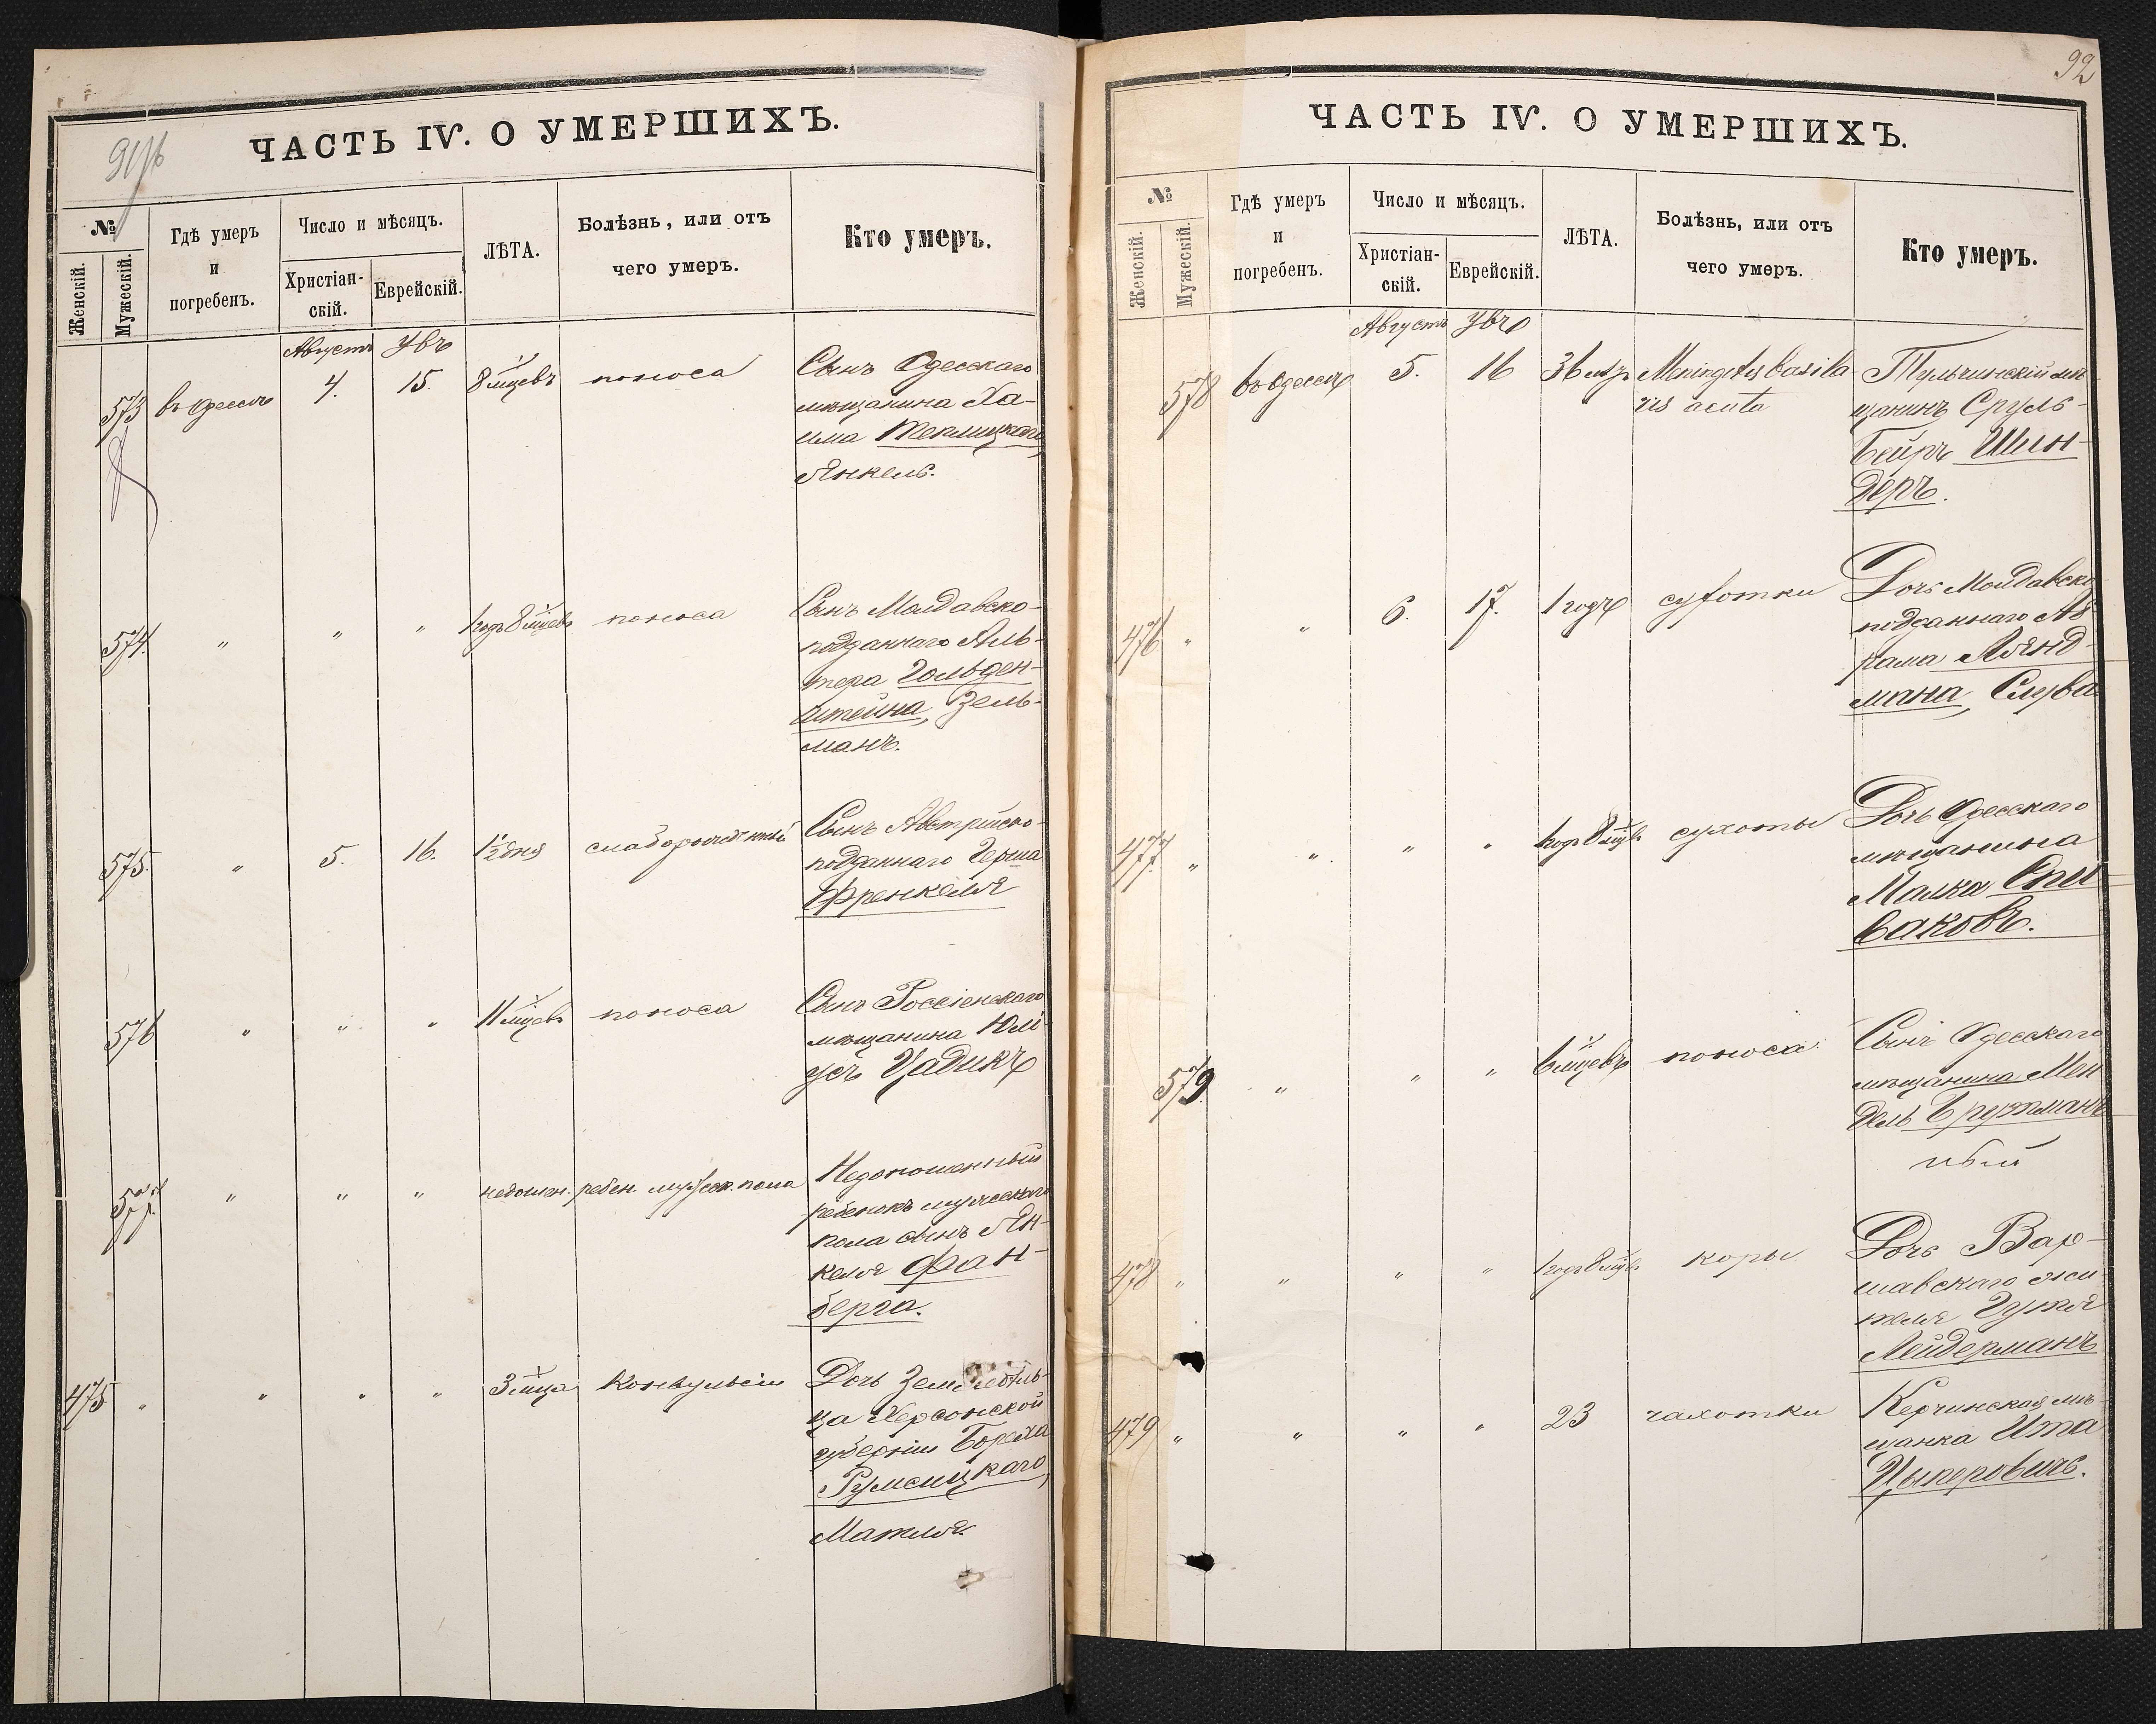 91 об
ЧАСТЬ IV. О УМЕРШИХЪ.
№
Женскій.
Мужескій.
Гдѣ умеръ
и
погребенъ.
Число и мѣсяцъ.
Христіан-
скій.
Еврейскій.
ЛѢТА.
Болѣзнь, или отъ
чего умеръ.
Кто умеръ.
Августъ
573 въ Одессѣ 4. 15. 8 мцевъ поноса Сынъ Одесскаго
мѣщанина Ха-
има Теплицкаго,
Янкель.
574. " " " 1 годъ 8 мцевъ поноса Сынъ Молдавско-
подданнаго Аль-
тера Гольден-
штейна, Зель-
манъ.
575. " 5. 16. 1½ дня слаборожденный Сынъ Австрійско-
подданнаго Герша
Френкеля
576 " " " 11 мцевъ поноса Сынъ Россіенскаго
мѣщанина Юлі
усъ Цадикъ
577. " " " недонош. ребен. мужеск. пола Недоношенный
ребенокъ мужескаго
пола сынъ Ян-
келя Фан-
берга.
475 " " " " 3 мца Конвульсіи Дочь Земледѣль-
ца Херсонской
губерніи Бороха
Румсицкаго,
Матля.
92
ЧАСТЬ IV. О УМЕРШИХЪ.
№
Женскій.
Мужескій.
Гдѣ умеръ
и
погребенъ.
Число и мѣсяцъ.
Христіан-
скій.
Еврейскій.
ЛѢТА.
Болѣзнь, или отъ
чего умеръ.
Кто умеръ.
Августъ
578 въ Одессѣ 5. 16 36 лѣтъ Meningitis basila-
ris acuta Тульчинскій мѣ-
щанинъ Сруль-
Бейръ Шин-
деръ.
476 " " 6. 17. 1 годъ сухотки Дочь Молдавско
подданнаго Аб-
рама Лянд-
мана,
477. " " " " 1 годъ 8 мцвъ сухоты Дочь Одесскаго
мѣщанина
Малка Спи
ваковъ.
579. " " " 6 мцевъ поноса Сынъ Одесскаго
мѣщанина Мен
дель
ный
478 " " " " 1 годъ 8 мцвъ коры Дочь Вар-
шавскаго жи-
теля Гутя
Лейдерманъ
479 " " " " 23 чахотки Керчинская мѣ-
щанка Ита
Цыперовичъ.